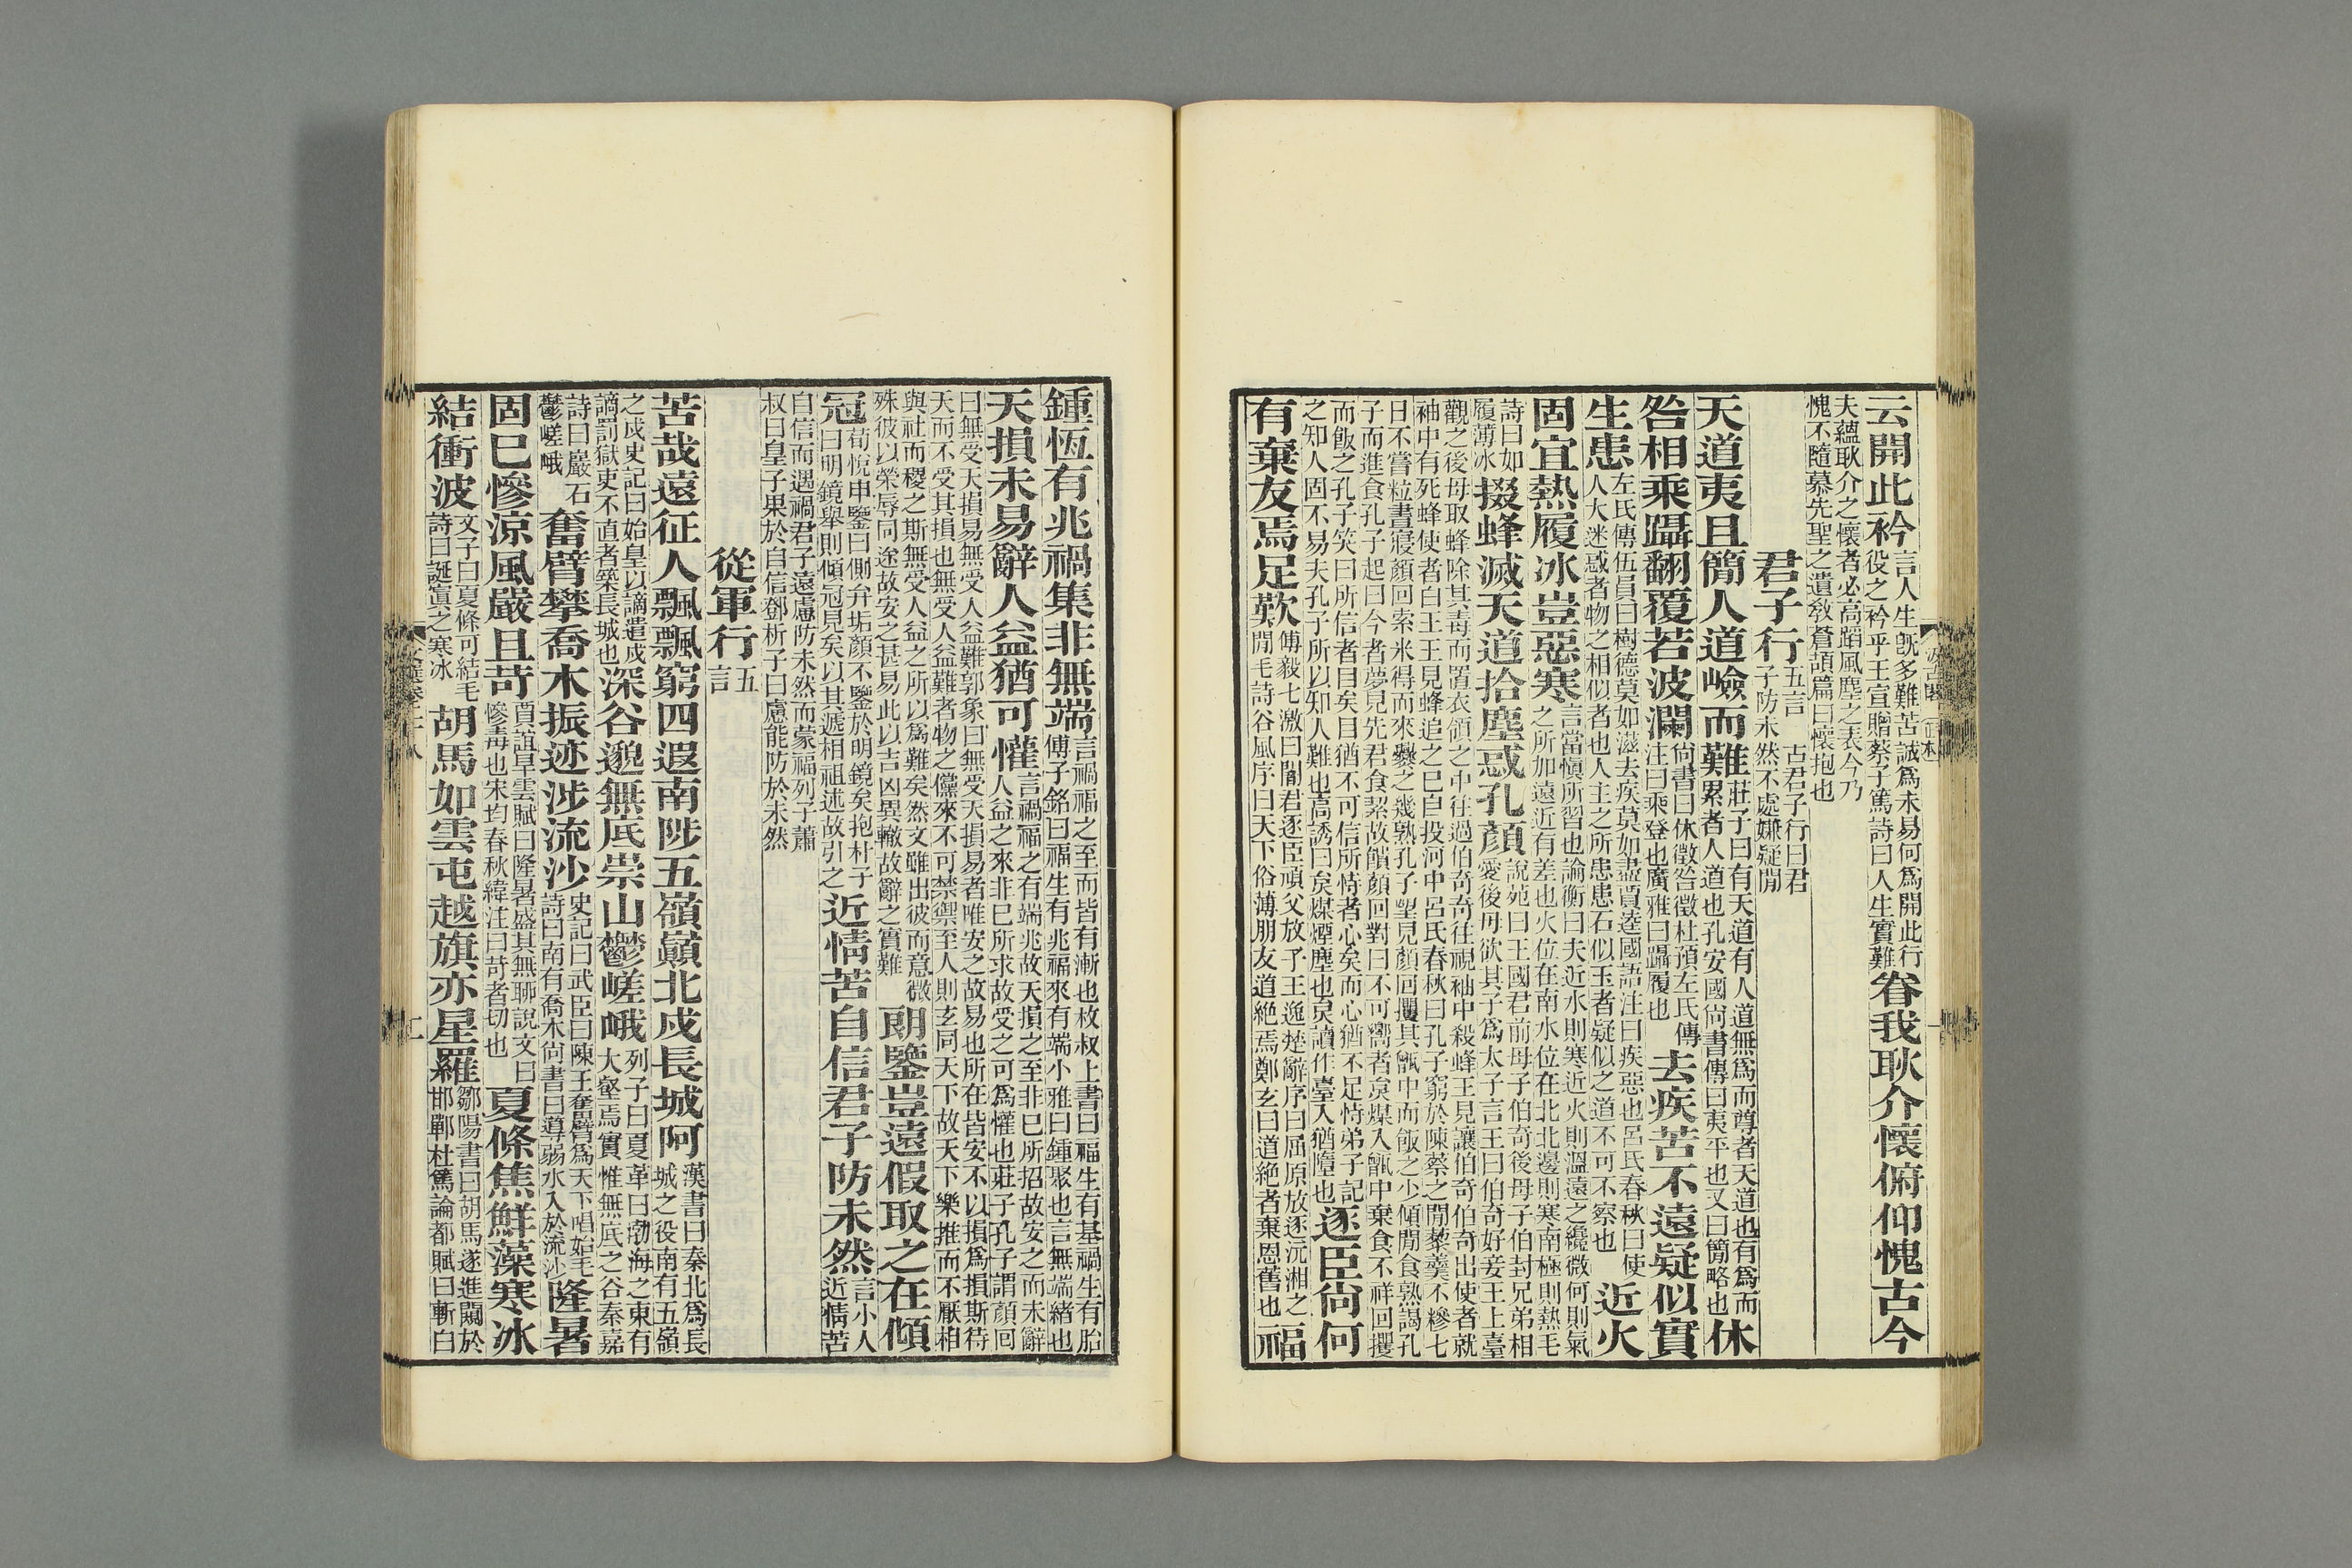 云開此衿言人生旣多難苦誠爲未易何爲開此行役之衿乎王宣贈蔡子篤詩曰人生實難眷我耿介懷俯仰愧古今
夫蘊耿介之懷者必高蹈風塵之表今乃愧不隨慕先聖之遺敎蒼頡篇曰懷抱也
君子行五言 古君子行曰君子防未然不處嫌疑閒
天道夷且簡人道嶮而難莊子曰有天道有人道無爲而尊者天道也有爲而累者人道也孔安國尚書傳曰夷平也又曰簡略也休
咎相乘躡翻覆若波瀾尚書曰休徵咎徵杜預左氏傳注曰乘登也廣雅曰躡履也去疾苦不遠疑似實
生患左氏傳伍員曰樹德莫如滋去疾莫如盡賈逵國語注曰疾惡也呂氏春秋曰使人大迷惑者物之相似者也人主之所患患石似玉者疑似之道不可不察也近火
固宜熱履冰豈惡寒言當愼所習也論衡曰夫近水則寒近火則溫遠之纔微何則氣之所加遠近有差也火位在南水位在北北邊則寒南極則熱毛
詩曰如履薄冰掇蜂滅天道拾塵惑孔顏說苑曰王國君前母子伯奇後母子伯封兄弟相愛後母欲其子爲太子言王曰伯奇好妾王上臺
觀之後母取蜂除其毒而置衣領之中往過伯奇奇往視袖中殺蜂王見讓伯奇伯奇出使者就袖中有死蜂使者白王王見蜂追之已自投河中呂氏春秋曰孔子窮於陳蔡之閒藜羹不糝七
日不嘗粒晝寢顏回索米得而來爨之幾熟孔子望見顏回攫其甑中而飯之少傾閒食熟謁孔子而進食孔子起曰今者夢見先君食絜故饋顏回對曰不可嚮者炱煤入甑中棄食不祥回攫
而飯之孔子笑曰所信者目矣目猶不可信所恃者心矣而心猶不足恃弟子記之知人固不易夫孔子所以知人難也高誘曰炱煤煙塵也炱讀作臺入猶墮也逐臣尚何
有棄友焉足歎傅毅七激曰闇君逐臣頑父放子王逸楚辭序曰屈原放逐沅湘之閒毛詩谷風序曰天下俗薄朋友道絕焉鄭玄曰道絕者棄恩舊也福
鍾恆有兆禍集非無端言禍福之至而皆有漸也枚叔上書曰福生有基禍生有胎傅子銘曰福生有兆福來有端小雅曰鍾聚也言無端緒也
天損未易辭人益猶可懽言禍福之有端兆故天損之至非己所招故安之而未辭人益之來非己所求故受之可爲懽也莊子孔子謂顏回
曰無受天損易無受人益難郭象曰無受天損易者唯安之故易也所在皆安不以損爲損斯待天而不受其損也無受人益難者物之儻來不可禁禦至人則玄同天下故天下樂推而不厭相
與社而稷之斯無受人益之所以爲難矣然文雖出彼而意微殊彼以榮辱同途故安之甚易此以吉凶異轍故辭之實難朗鑒豈遠假取之在傾
冠荀悅申鑒曰側弁垢顏不鑒於明鏡矣抱朴子曰明鏡舉則傾冠見矣以其遞相祖述故引之近情苦自信君子防未然言小人近情苦
自信而遇禍君子遠慮防未然而蒙福列子蕭叔曰皇子果於自信鄧析子曰慮能防於未然
從軍行五言
苦哉遠征人飄飄窮四遐南陟五嶺巔北戍長城阿漢書曰秦北爲長城之役南有五嶺
之戍史記曰始皇以謫遣戍謫罰獄吏不直者築長城也深谷邈無底崇山鬱嵯峨列子曰夏革曰渤海之東有大壑焉實惟無底之谷秦嘉
詩曰巖石鬱嵯峨奮臂攀喬木振迹涉流沙史記曰武臣曰陳王奮臂爲天下唱始毛詩曰南有喬木尚書曰導弱水入於流沙隆暑
固已慘涼風嚴且苛賈誼旱雲賦曰隆暑盛其無聊說文曰慘毒也宋均春秋緯注曰苛者切也夏條焦鮮藻寒冰
結衝波文子曰夏條可結毛詩曰誕寘之寒冰胡馬如雲屯越旗亦星羅鄒陽書曰胡馬遂進闚於邯鄲杜篤論都賦曰斬白